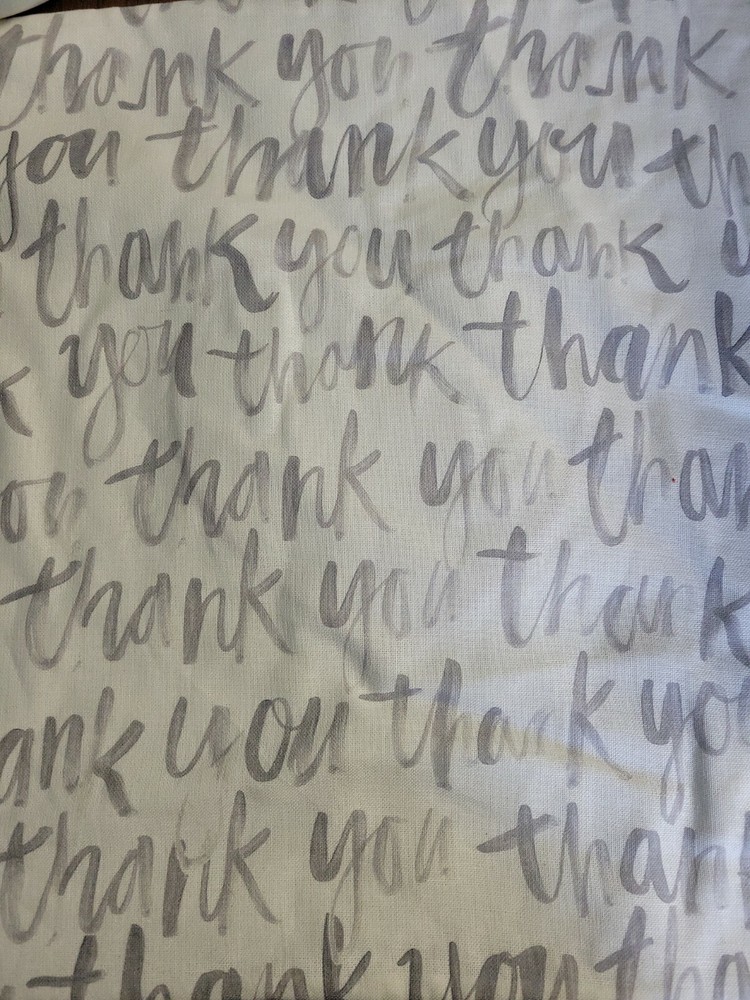 thank you thank
you thank you th
thank you thank y
k you thank thank
ou thank you than
thank you thank
ank you thank you
thank you thank
thank you tha